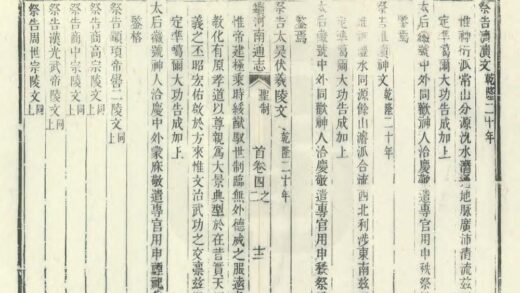 祭告濟瀆文乾隆二十年
惟神衍常山分源沇水濟地脉廣沛清流茲
定準噶爾大功告成加上
太后徽號中外同歡神人洽慶敬遣專官用申秩祭
鑒焉
祭告文乾隆二十年
惟神水同源餘山溶派合流西北利涉東南茲
定準噶爾大功告成加上
太后徽號中外同歡神人洽慶敬遣專官用申秩祭
鑒焉
續河南通志 聖制 首卷四之二 十二
祭告太昊伏羲陵文 乾隆二十年
惟帝建極乘時綏猷馭世制臨無外德威之服遠
教化有原孝道以尊親為大景典型於在昔貫天
義之丕昭宏佑啟於方來惟文治武功之交凜茲
定準噶爾大功告成加上
太后徽號神人洽慶中外蒙庥敬遣專官用申禋祀
鑒格
祭告顓頊帝嚳二陵文同上
祭告商高宗陵文同上
祭告商中宗陵文同上
祭告漢光武帝陵文同上
祭告周世宗陵文同上